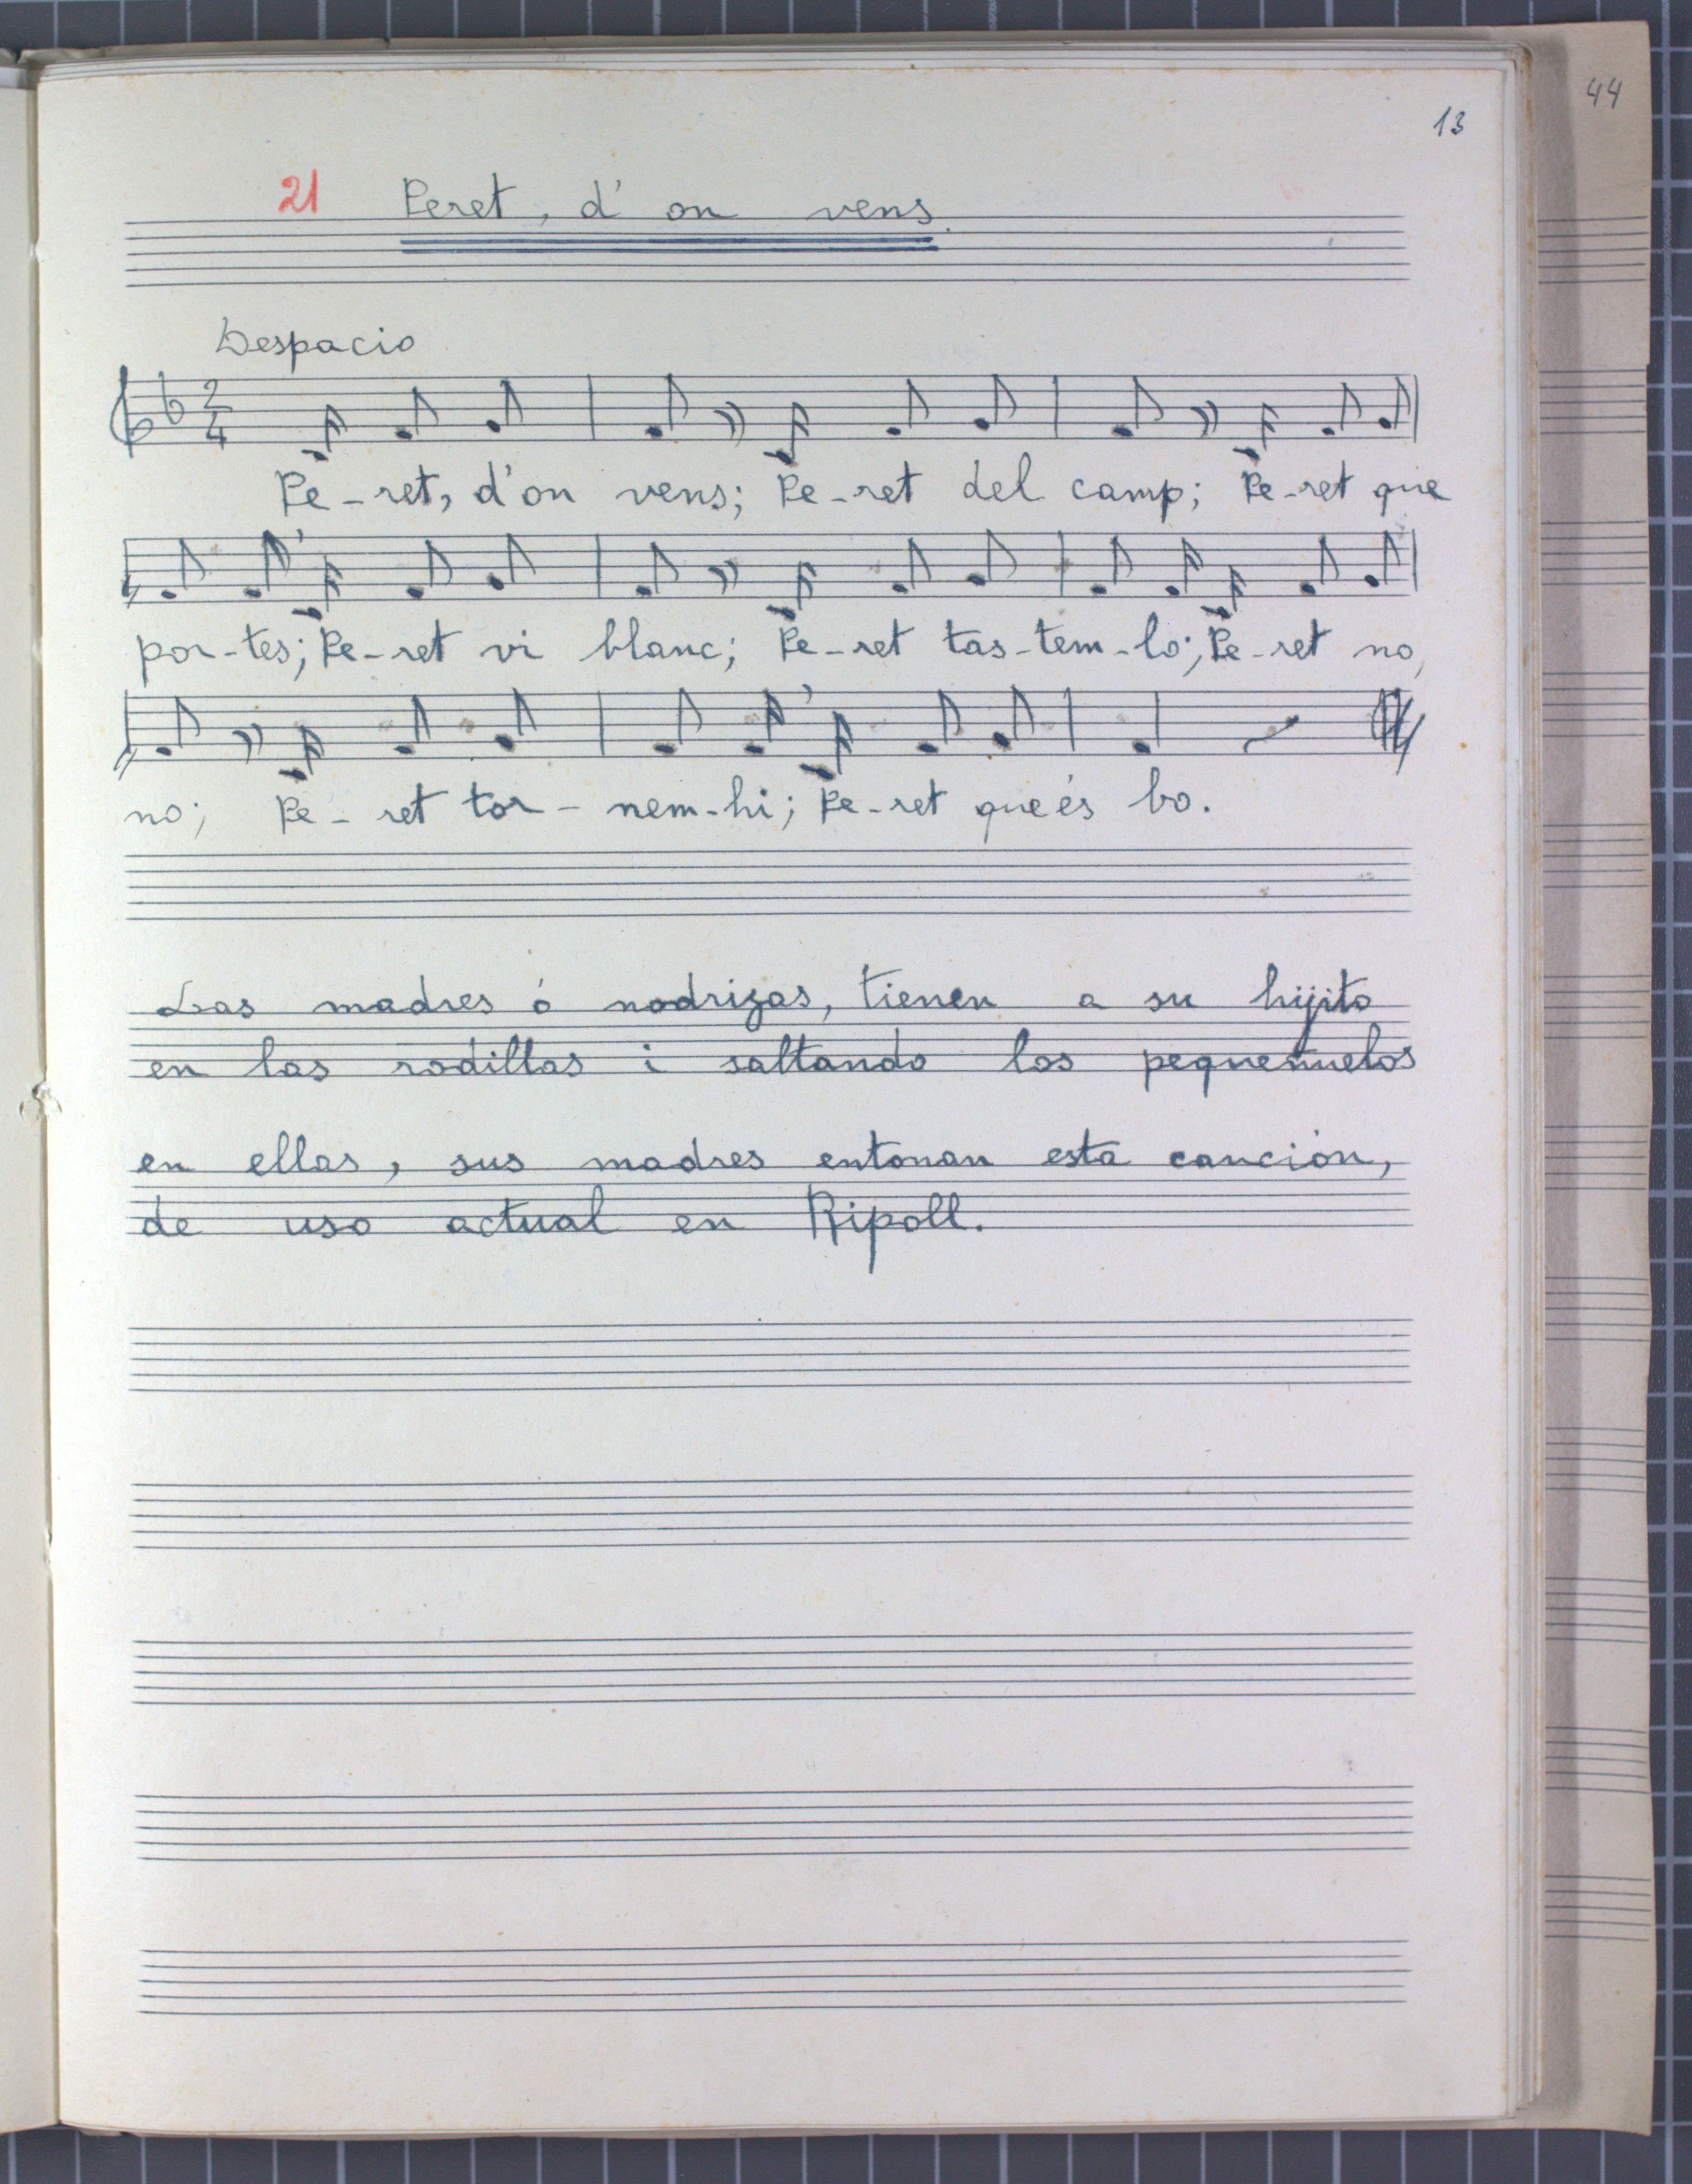 44
13
21 Peret, d'on vens.
Despacio
2
4
Pe-ret, d'on vens; Pe-ret del camp; Pe-ret que
por-tes; Pe-ret vi blanc; Pe-ret tas-tem-lo; Pe-ret no,
no; Pe-ret tor-nem-hi; Pe-ret que és bo.
Las madres ó nodrizas, tienen a su hijito
en las rodillas i saltando los pequeñuelos
en ellas, sus madres entonan esta canción,
de uso actual en Ripoll.